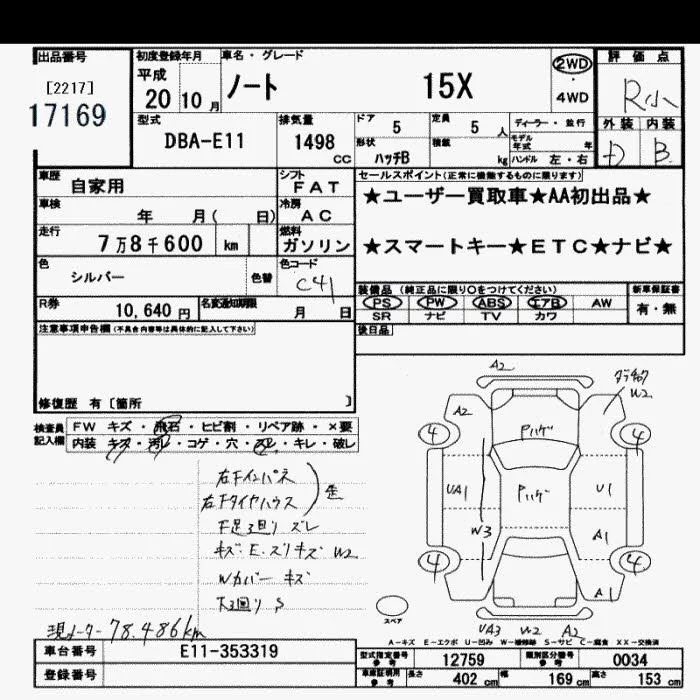 出品番号 初度登録年月 車名・グレード 評価点
[2217] 平成 2WD
17169 20 10月 ノート 15X 4WD R小
型式 排気量 ドア 定員 ディーラー・並行 外装 内装
DBA-E11 1498 CC 5 5 人 モデル年式 年
形状 積載 D B
ハッチB kg ハンドル 左・右
車歴 自家用 シフト FAT セールスポイント(正常に機能するものに限ります)
車検 年 月( 日) 冷房 AC ★ユーザー買取車★AA初出品★
走行 7万8千600 km 燃料 ガソリン ★スマートキー★ETC★ナビ★
色 シルバー 色替 色コード C41
装備品 (純正品に限り○をつけてください) 新車保証書
PS PW ABS エアB AW 有・無
SR ナビ TV カワ
R券 10,640円 名変通知期限 月 日
後日品
注意事項申告欄(不具合内容等は具体的に記入して下さい)
修復歴 有〔箇所 〕
検査員記入欄 FW キズ・飛石・ヒビ割・リペア跡・×要
内装 キズ・汚レ・コゲ・穴・スレ・キレ・破レ
右Fインパネ
右Fタイヤハウス
F足回り ズレ
キズ・E・スリキズ W2
Wカバー キズ
下回り S
現メーター78.486km
A2
W2
A2
4 4
Pハゲ
UA1 Pハゲ U1
W3 A1
4 4
A1
スペア
UA3 W2 A2
A-キズ E-エクボ U-凹み W-補修跡 S-サビ C-腐食 XX-交換済
車台番号 E11-353319
登録番号
型式指定番号 参考 12759 類別区分番号 参考 0034
車庫証明用 参考 長さ 402 cm 幅 169 cm 高さ 153 cm